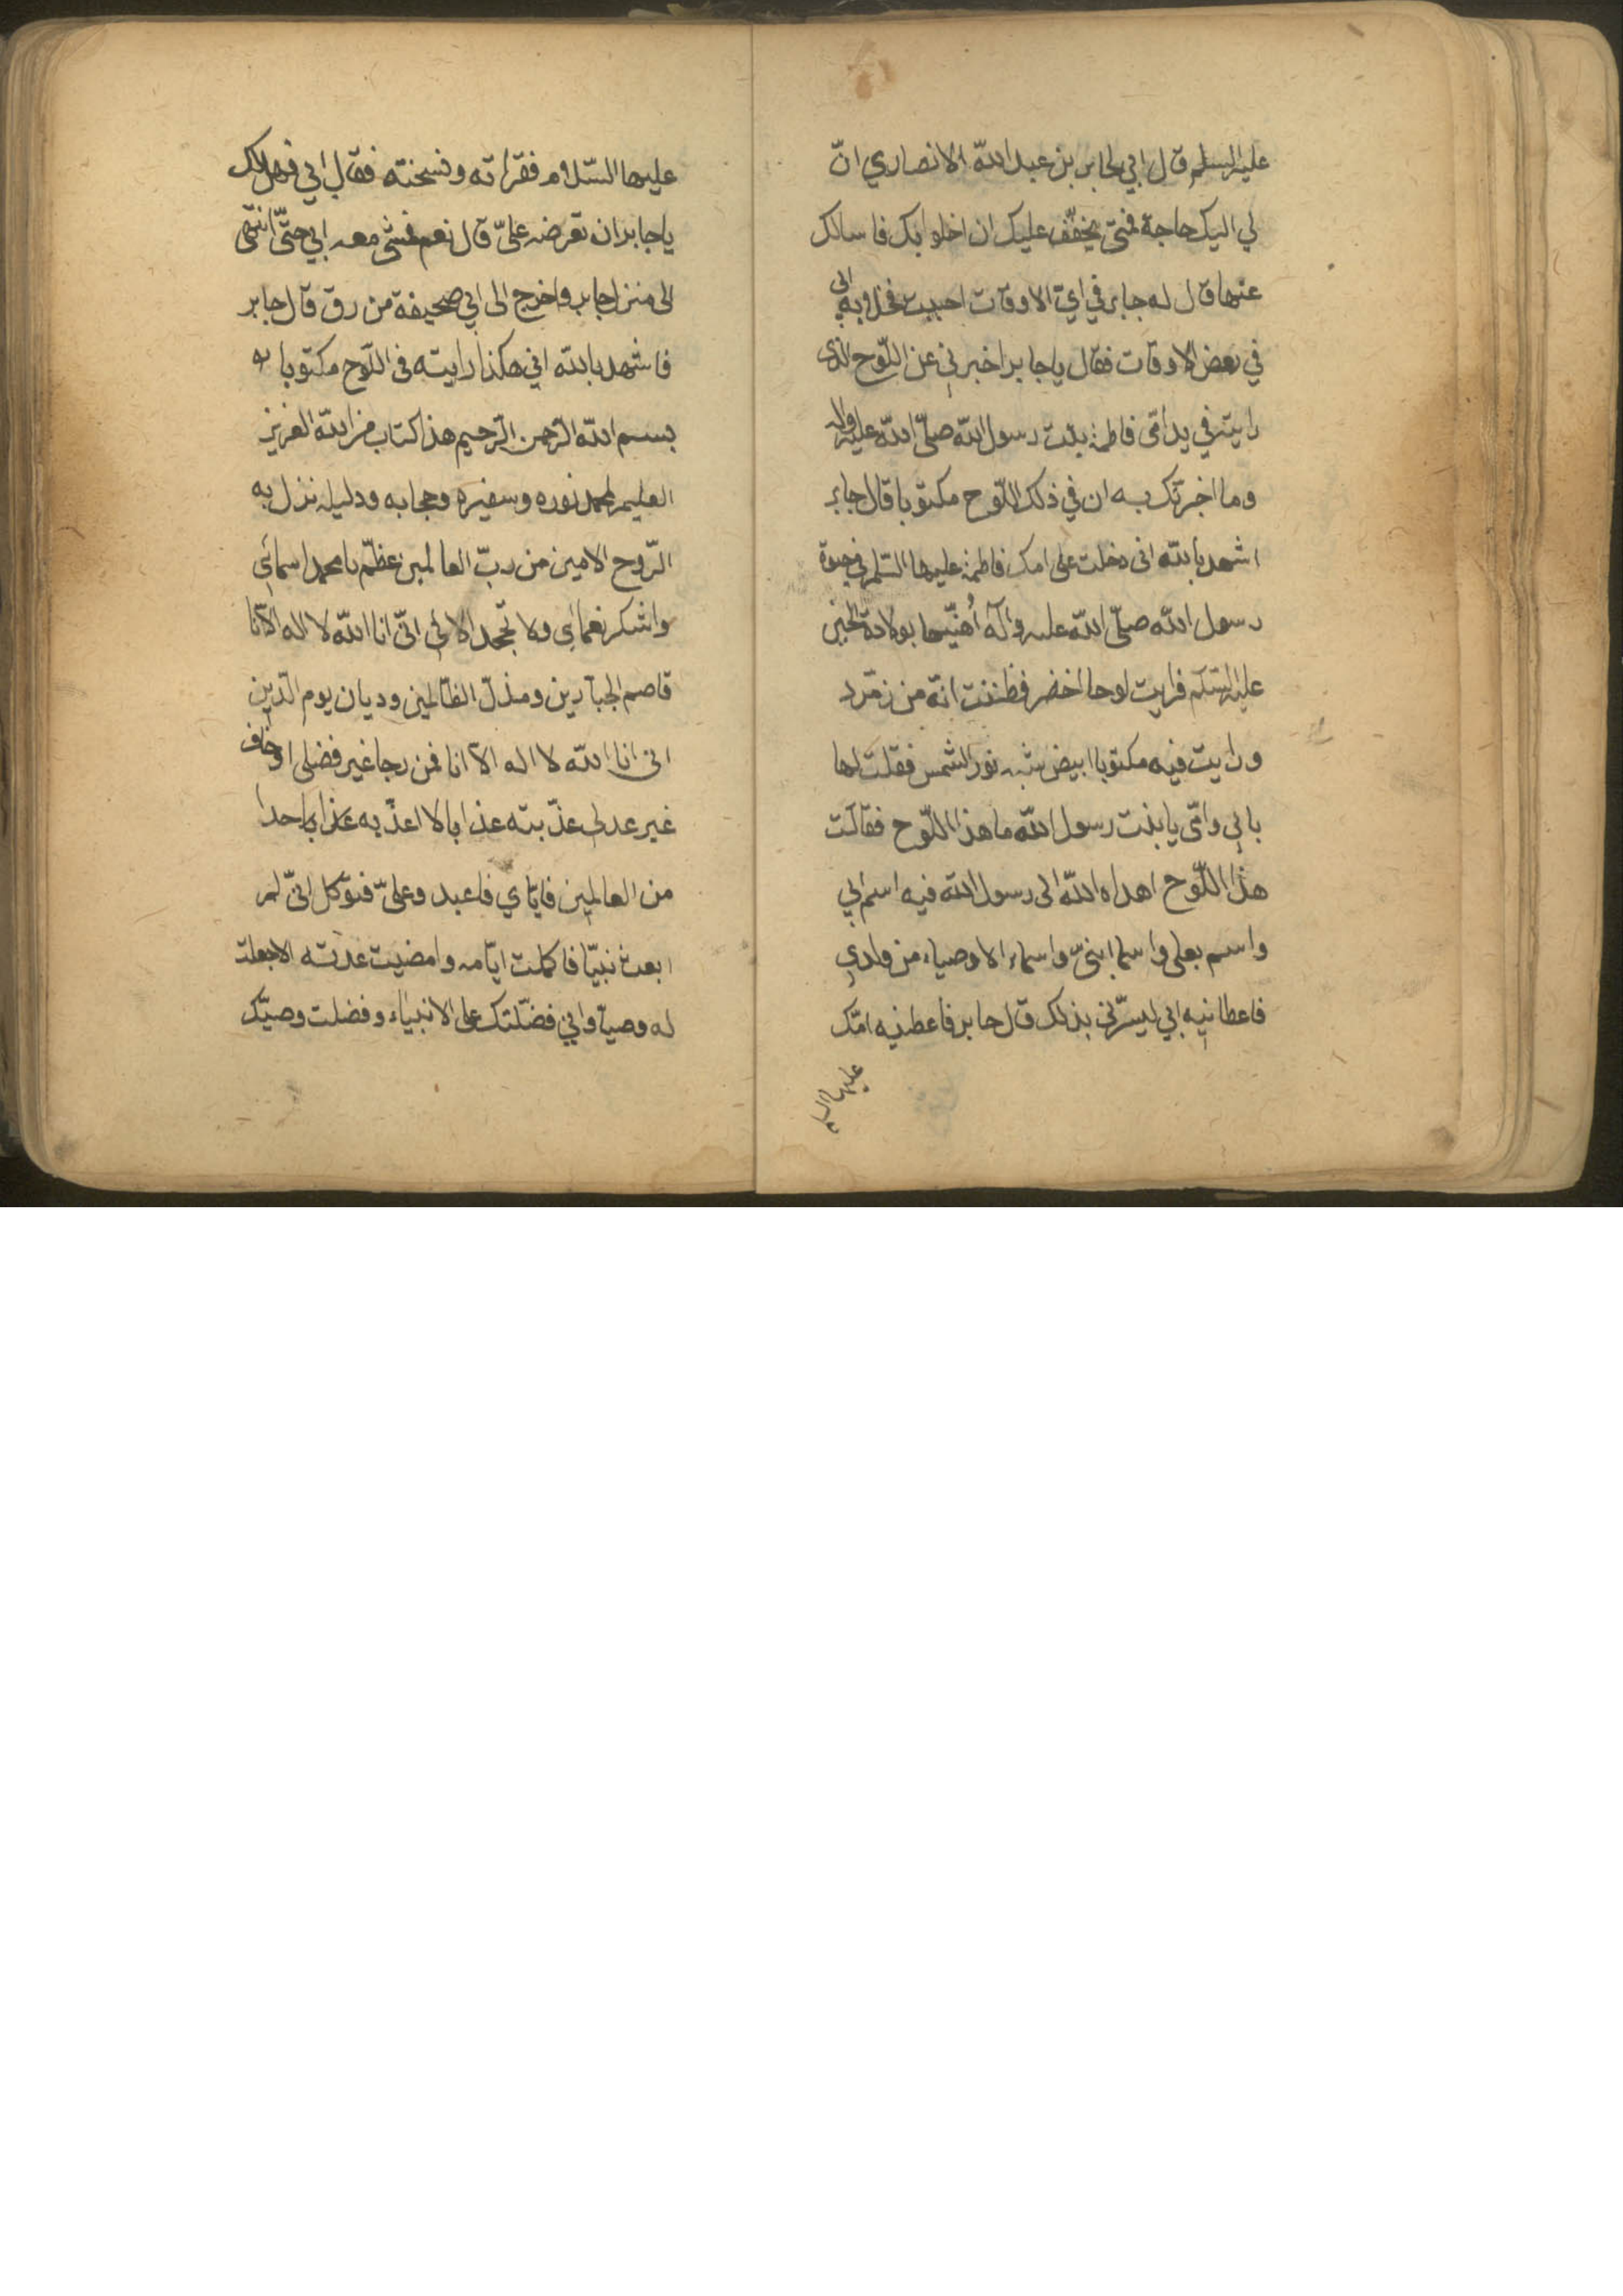 عليه السلم قال ابي لجابر بن عبد الله الانصاري انّ
لي اليك حاجة فمتى يخفّف عليك ان اخلو بك فاسالك
عنها قال له جابر في ايّ الاوقات احببت فخلا به ابي
في بعض الاوقات فقال يا جابر اخبرني عن اللّوح الذي
رايته في يد امّي فاطمة بنت رسول الله صلّى الله عليه واله
وما اخبرتك به ان في ذلك اللّوح مكتوبا قال جابر
اشهد بالله اني دخلت على امك فاطمة عليها السّلم في حيوة
رسول الله صلّى الله عليه وآله أُهنّيها بولادة الحسين
عليه السّلم فرايت لوحا اخضر فظننت انّه من زمّرد
ورايت فيه مكتوبا ابيض شبه نور الشمس فقلت لها
بابي وامّي يا بنت رسول الله ما هذا اللّوح فقالت
هذا اللّوح اهداه الله الى رسول الله فيه اسم ابي
واسم بعلي واسما ابنيّ واسماء الاوصياء من ولدي
فاعطانيه ابي ليسرّني بذلك قال جابر فاعطتنيه امّك
عليها السلم
عليها السّلام فقراته ونسخته فقال ابي فهل لك
يا جابر ان تعرضه عليّ قال نعم فمشى معه ابي حتّى انتهى
الى منزل جابر واخرج الى ابي صحيفة من رق قال جابر
فاشهد بالله اني هكذا رايته في اللّوح مكتوبا
بسم الله الرّحمن الرّحيم هذا كتاب من الله العزيز
العليم لمحمد نوره وسفيره وحجابه ودليله نزل به
الرّوح الامين من ربّ العالمين عظّم يا محمد اسمائي
واشكر نعمائي ولا تجحد الائي انّي انا الله لا اله الّا انا
قاصم الجبّارين ومذلّ الظّالمين وديان يوم الدّين
اني انا الله لا اله الّا انا فمن رجا غير فضلي او خاف
غير عدلي عذّبته عذابا لا اعذّبه احدا
من العالمين فايّاي فاعبد وعليّ فتوكل انّي لم
ابعث نبيّا فاكملت ايّامه وامضيت عدته الا جعلت
له وصيّا واني فضّلتك على الانبياء وفضلت وصيّك